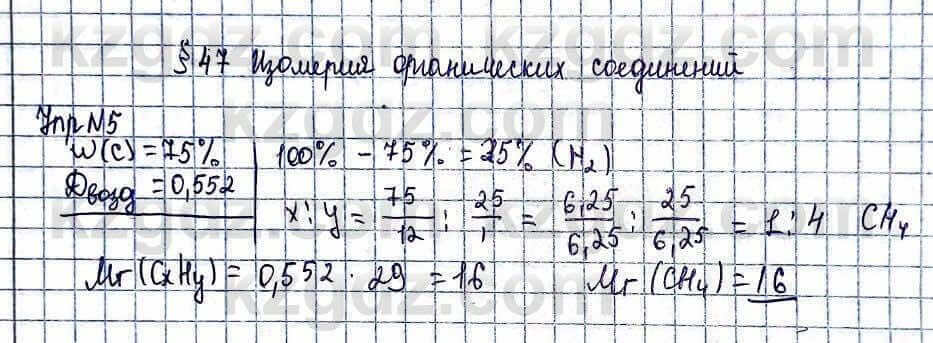 § 47 Изомерия органических соединений
Упр №5
w(C) = 75% 100% - 75% = 25% (H₂)
Dвозд = 0,552
x : y = 75/12 : 25/1 = 6,25/6,25 : 25/6,25 = 1 : 4 CH₄
Mr (CxHy) = 0,552 · 29 = 16 Mr (CH₄) = 16
kzgdz.com